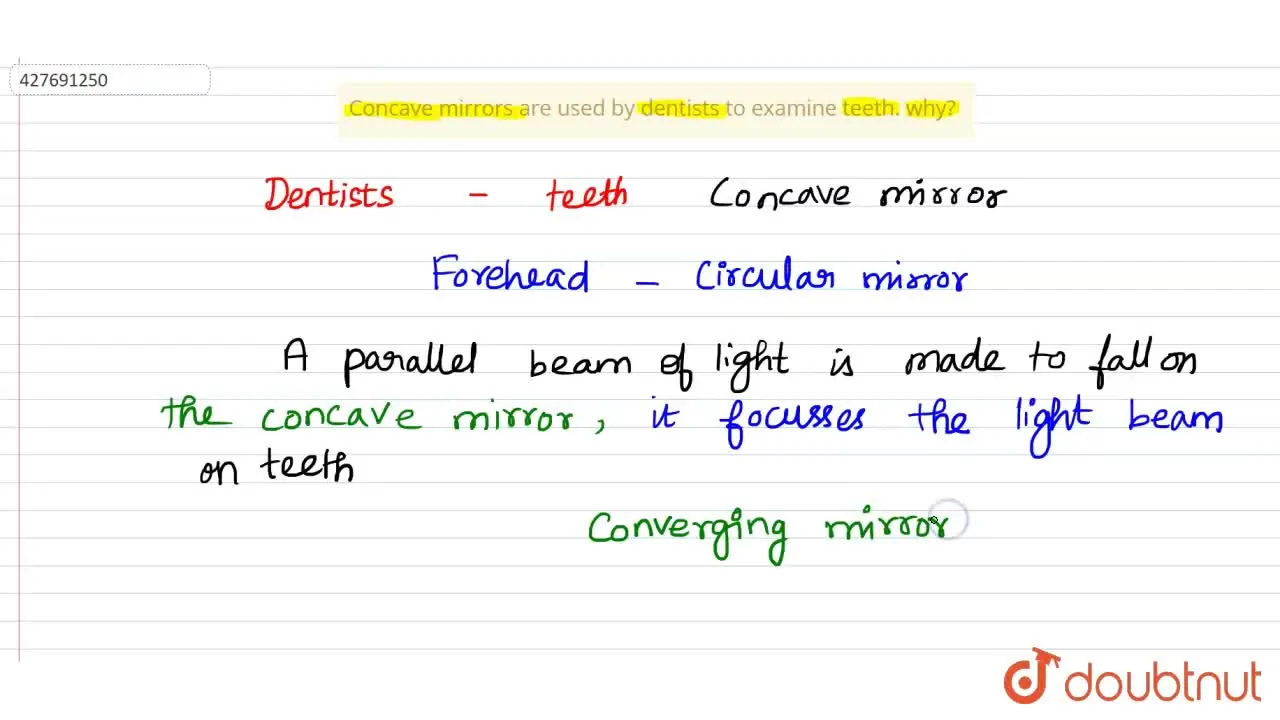 427691250
Concave mirrors are used by dentists to examine teeth. why?
Dentists - teeth Concave mirror
Forehead - Circular mirror
A parallel beam of light is made to fall on
the concave mirror, it focusses the light beam
on teeth
Converging mirror
doubtnut